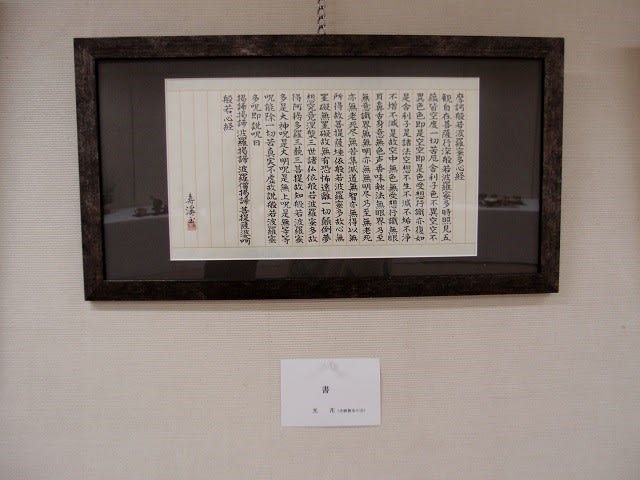 摩訶般若波羅蜜多心経
観自在菩薩行深般若波羅蜜多時照見五
蘊皆空度一切苦厄舎利子色不異空空不
異色色即是空空即是色受想行識亦復如
是舎利子是諸法空想不生不滅不垢不浄
不増不減是故空中無色無受想行識無眼
耳鼻舌身意無色声香味触法無眼界乃至
無意識界無無明亦無無明尽乃至無老死
亦無老死尽無苦集滅道無智亦無得以無
所得故菩提薩埵依般若波羅蜜多故心無
罣礙無罣礙故無有恐怖遠離一切顛倒夢
想究竟涅槃三世諸仏依般若波羅蜜多故
得阿耨多羅三藐三菩提故知般若波羅蜜
多是大神呪是大明呪是無上呪是無等等
呪能除一切苦真実不虚故説般若波羅蜜
多呪即説呪曰
羯諦羯諦波羅羯諦波羅僧羯諦菩提薩婆訶
般若心経
書